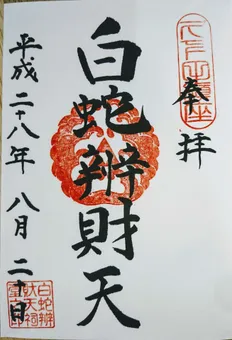 奉拝
白蛇辨財天
平成二十八年八月二十日
白蛇辨
財天祠